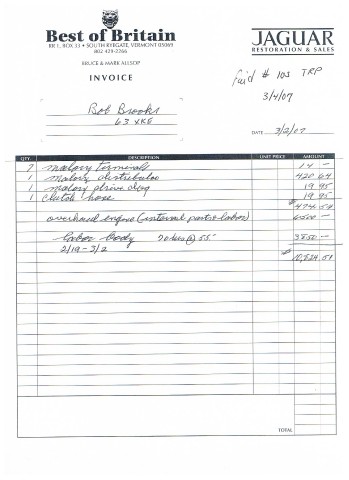 Best of Britain
RR 1, BOX 33 • SOUTH RYEGATE, VERMONT 05069
802 429-2266
BRUCE & MARK ALLSOP
INVOICE
JAGUAR
RESTORATION & SALES
Paid # 103 TRP
3/4/07
Bob Brooks
63 XKE
DATE 3/2/07
QTY. DESCRIPTION UNIT PRICE AMOUNT
7 malory terminals 14 -
1 malory distributor 420 64
1 malory drive dog 19 95
1 clutch hose 19 95
$ 474 54
overhaul engine (internal parts + labor) 6500 -
labor body 70 hrs @ 55 3850 -
2/19 - 3/2
$ 10,824 54
TOTAL